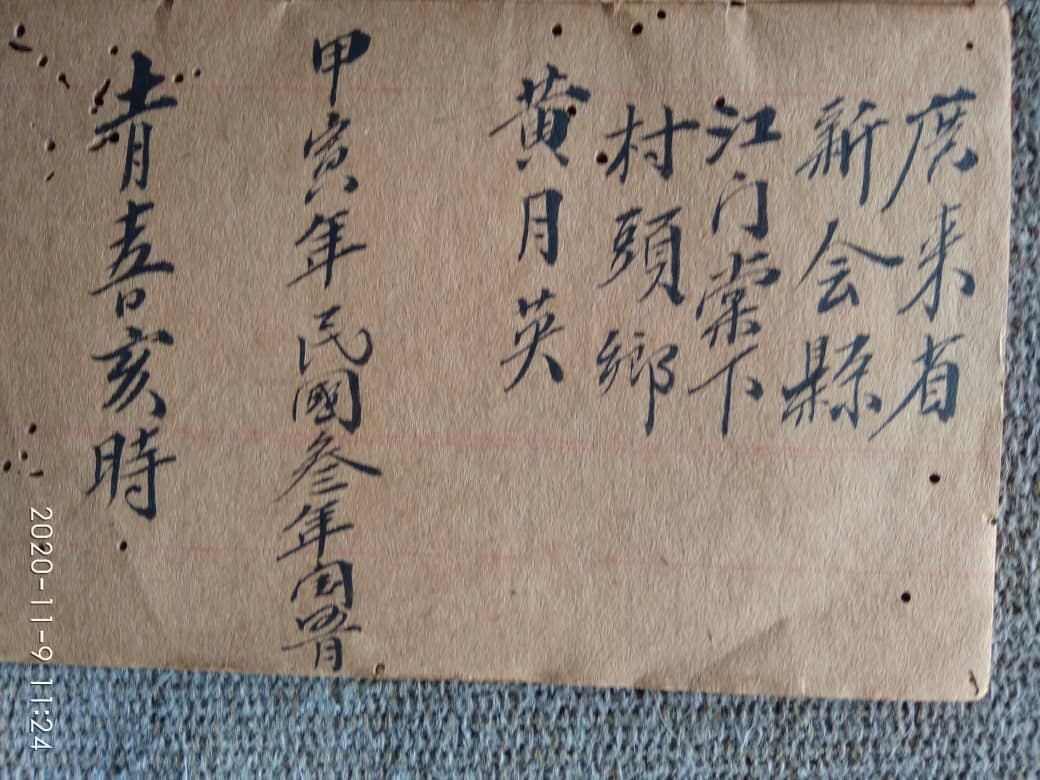 廣东省
新会縣
江门棠下
村頭鄉
黄月英
甲寅年民國叁年
亥時
2020-11-9 11:24